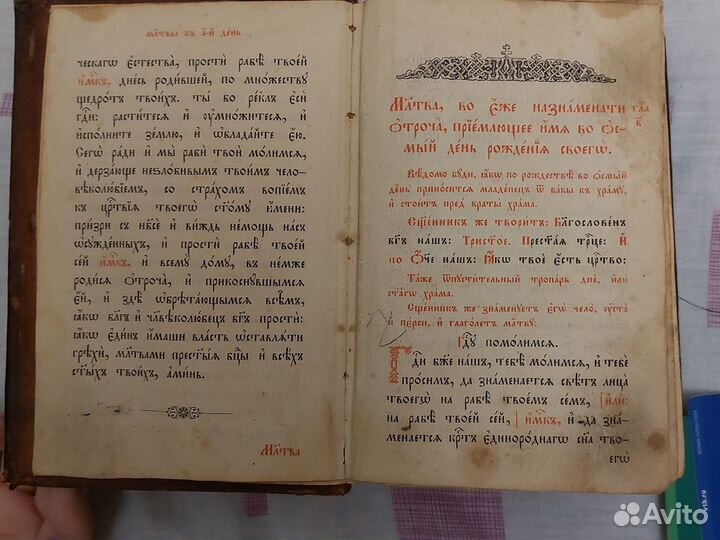 МЛ҃твы въ а҃-й де́нь
ческагѡ є҆стества̀, простѝ рабѣ̀ твое́й
и҆́м҃къ, дне́сь роди́вшей, по мно́жеству
щедро́тъ твои́хъ. ты́ бо ре́клъ є҆сѝ
гд҇и: расти́теся и҆ ᲂу҆мно́житеся, и҆
и҆спо́лните зе́млю, и҆ ѡ҆блада́йте є҆́ю.
Сегѡ̀ ра́ди и҆ мы̀ рабѝ твоѝ мо́лимся,
и҆ дерза́юще неѕло́бивымъ твои́мъ чело-
вѣколю́бїемъ, со стра́хомъ вопїе́мъ
къ ца́рствїѧ твоегѡ̀ ст҃о́мꙋ и҆́мени:
при́зри съ нб҃сѐ и҆ ви́ждь не́мощь на́съ
ѡ҆сꙋжде́нныхъ, и҆ простѝ рабѣ̀ твое́й
се́й и҆́м҃къ, и҆ всемꙋ̀ до́мꙋ, въ не́мже
роди́ся ѻ҆троча̀, и҆ прикоснꙋ́вшымся
є҆́й, и҆ здѣ̀ ѡ҆брѣта́ющымся всѣ̑мъ,
ꙗ҆́кѡ бл҃гъ и҆ чл҃вѣколю́бецъ бг҃ъ простѝ:
ꙗ҆́кѡ є҆ди́нъ и҆́маши вла́сть ѡ҆ставлѧ́ти
грѣхѝ, мл҃твами прест҃ы́ѧ бц҃ы и҆ всѣ́хъ
ст҃ы́хъ твои́хъ, а҆ми́нь.
Мл҃тва
Мл҃тва, во є҆́же назна́менати
ѻ҆троча̀, прїе́млющее и҆́мѧ во ѻ҆с-
мы́й де́нь рожде́нїѧ своегѡ̀.
гла̀
в҃
Вѣ́домо бꙋ́ди, ꙗ҆́кѡ по рождествѣ̀ во ѻ҆смы́й
де́нь прино́сится младе́нецъ ѿ ба́бы къ хра́мꙋ,
и҆ стои́тъ пред̾ враты̀ хра́ма.
Сщ҃е́нникъ же твори́тъ: Благослове́нъ
бг҃ъ на́шъ: Трист҃о́е. Прест҃а́ѧ трⷪ҇це: И҆
по Ѻ҆́ч҃е на́шъ: Ꙗ҆́кѡ твоѐ є҆́сть ца́рство:
Та́же ѿпꙋсти́тельный тропа́рь днѐ, и҆лѝ
ст҃а́гѡ хра́ма.
Сщ҃е́нникъ же зна́менꙋетъ є҆гѡ̀ чело̀, ᲂу҆ста̀
и҆ пе́рси, и҆ глаго́летъ мл҃твꙋ:
Гд҇ꙋ помо́лимся.
Гд҇и бж҃е на́шъ, тебѣ̀ мо́лимся, и҆ тебѐ
про́симъ, да зна́менается свѣ́тъ лица̀
твоегѡ̀ на рабѣ̀ твое́мъ се́мъ, [и҆лѝ:
на рабѣ̀ твое́й се́й,] и҆́м҃къ, и҆ да зна́-
менается крⷭ҇тъ є҆диноро́днагѡ сн҃а тво-
егѡ̀
Avito